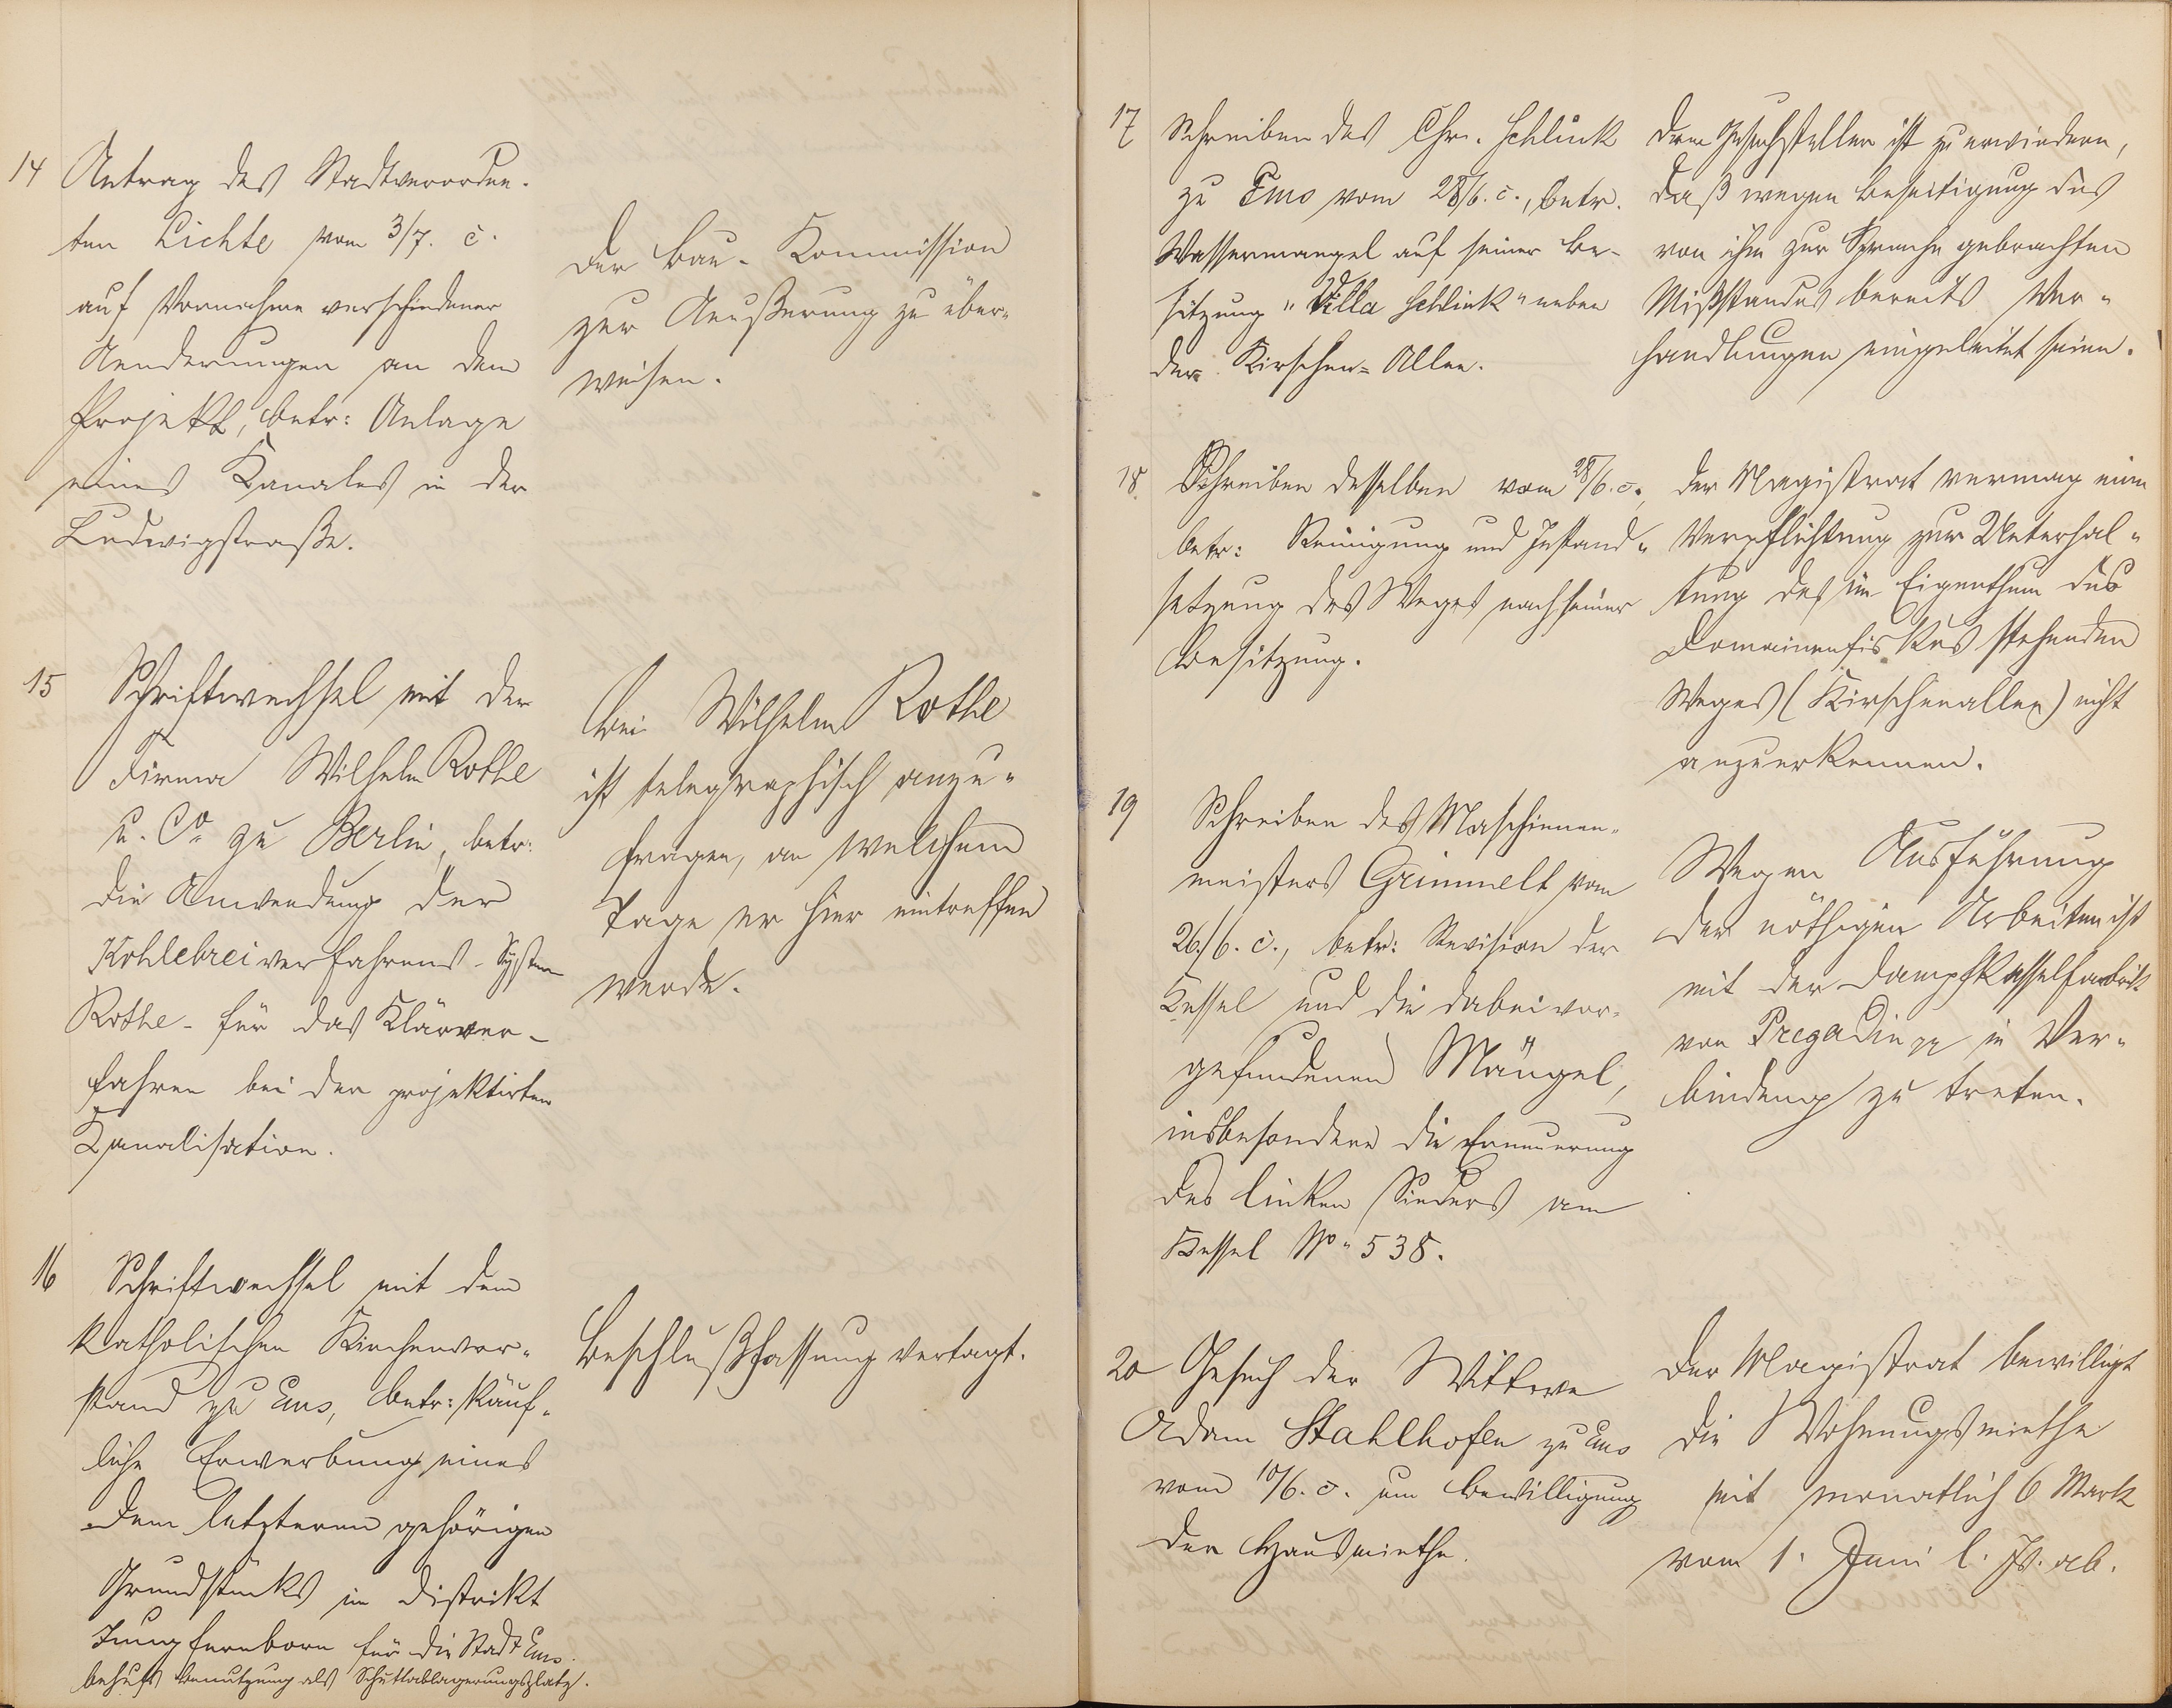 14 Antrag des Stadtverordne-
ten Lichte vom 3/7. c.
auf Vornahme verschiedener
Aenderungen an dem
Projekt, betr: Anlage
eines Kanales in der
Ludwigstraße.
Der Bau-Kommission
zur Aeußerung zu über-
weisen.
15 Schriftwechsel mit der
Firma Wilhelm Rothe
u. Co zu Berlin, betr:
die Anwendung der
Kohlebreiverfahrens-System
Rothe- für das Klärver-
fahren bei der projektirten
Kanalisation.
bei Wilhelm Rothe
ist telegraphisch anzu-
fragen, an welchem
Tage er hier eintreffen
werde.
16 Schriftwechsel mit dem
katholischen Kirchenvor-
stand zu Ems, betr: käuf-
liche Erwerbung eines
dem letzteren gehörigen
Grundstücks im Distrikt
Jungfernborn für die Stadt Ems
behufs Benutzung als Schuttablagerungsplatz.
Beschlußfassung vertagt.
17 Schreiben des Chr. Schlink
zu Ems vom 28/6. c., betr.
Wassermangel auf seiner Be-
sitzung "Villa Schlink" neben
der Kirschen-Allee.
Dem Gesuchsteller ist zu erwiedern,
daß wegen Beseitigung des
von ihm zur Sprache gebrachten
Mißstandes bereits Ver-
handlungen eingeleitet seien.
18 Schreiben desselben vom 28/6. c.,
betr: Reinigung und Instand-
setzung des Weges nach seiner
Besitzung.
Der Magistrat vermag eine
Verpflichtung zur Unterhal-
tung des im Eigenthum des
Domainenfiskus stehenden
Weges (Kirschenallee) nicht
anzuerkennen.
19 Schreiben des Maschinen-
meisters Grimmelt vom
26/6. c., betr: Revision der
Kessel und die dabei vor-
gefundenen Mängel,
insbesondere die Erneuerung
des linken Sieders am
Kessel No 538.
Wegen Ausführung
der nöthigen Arbeiten ist
mit der Dampfkesselfabrik
von Pregadin in Ver-
bindung zu treten.
20 Gesuch der Wittwe
Adam Stahlhofen zu Ems
vom 10/6. c. um Bewilligung
der Hausmiethe.
Der Magistrat bewilligt
die Wohnungsmiethe
mit monatlich 6 Mark
vom 1. Juni l. Js. ab.